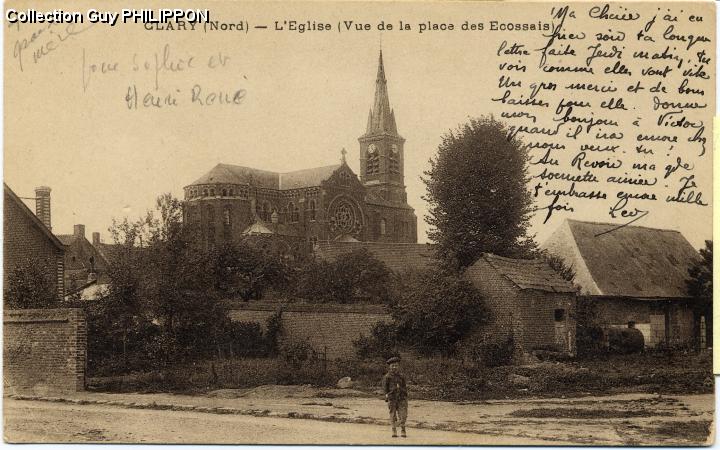 Collection Guy PHILIPPON
CLARY (Nord) — L'Eglise (Vue de la place des Ecossais)
mère
pour Sophie et
Henri René
Ma Chérie j'ai eu
hier soir ta longue
lettre faite Jeudi matin, tu
vois comme elles vont vite
Un gros merci et de bons
baisers pour elle. donne
mon bonjour à Victor
quand il ira encore chez
nous veux-tu !
Au Revoir ma gde
soeurette aimée. Je
t'embrasse encore mille
fois